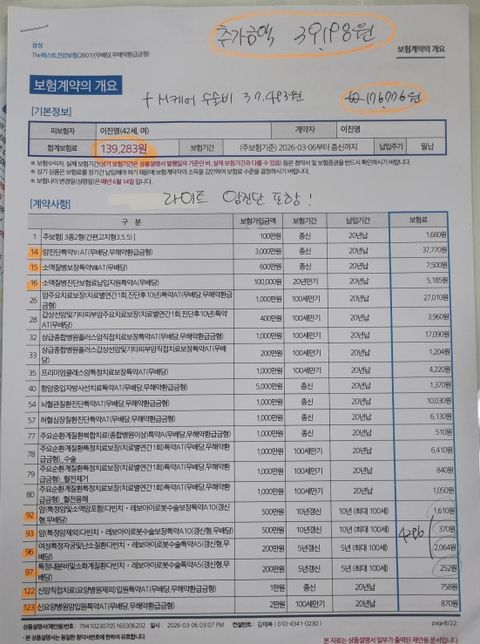 추가금액 39,198원
삼성
The퍼스트건강보험(2601)(무배당,무해약환급금형)
보험계약의 개요
보험계약의 개요
+ M케어 수술비 37,493원
176,776원
[기본정보]
피보험자 이진영(42세, 여) 계약자 이진영
합계보험료 139,283원 보험기간 (주보험기준) 2026-03-06부터 종신까지 납입주기 월납
[계약사항]
라이트 암진단 포함!
구 분 보험가입금액 보험기간 납입기간 보험료
1 주보험[ 3종2형(간편고지형3.5.5) ] 100만원 종신 20년납 1,680원
14 암진단특약VI AT(무배당,무해약환급금형) 3,000만원 종신 20년납 37,770원
15 소액질병보장특약 AT(무배당) 600만원 종신 20년납 7,500원
16 소액질병진단보험료납입지원특약A5(무배당) 100,000원 20년만기 20년납 5,185원
26 암주요치료보장(치료별연간1회,진단후10년)특약AT(무배당,무해약환급금형) 1,000만원 100세만기 20년납 27,010원
28 갑상선암및기타피부암주요치료보장(치료별연간1회,진단후10년)특약AT(무배당) 400만원 100세만기 20년납 3,960원
32 상급종합병원플러스암직접치료보장특약AT(무배당,무해약환급금형) 1,000만원 100세만기 20년납 17,090원
33 상급종합병원플러스갑상선암및기타피부암직접치료보장특약AT(무배당) 200만원 100세만기 20년납 1,204원
35 프리미엄클래스암특정치료보장특약AT(무배당) 1,000만원 100세만기 20년납 4,220원
40 항암중입자방사선치료특약AT(무배당,무해약환급금형) 5,000만원 종신 20년납 1,370원
54 뇌혈관질환진단특약AT(무배당,무해약환급금형) 1,000만원 종신 20년납 10,030원
57 허혈심장질환진단특약AT(무배당,무해약환급금형) 1,000만원 종신 20년납 6,130원
77 주요순환계질환복합치료(종합병원이상)특약A(무배당,무해약환급금형) 1,000만원 종신 20년납 510원
78 주요순환계질환특정치료보장(치료별연간1회)특약AT(무배당,무해약환급금형)_수술 1,000만원 100세만기 20년납 6,410원
79 주요순환계질환특정치료보장(치료별연간1회)특약AT(무배당,무해약환급금형)_혈전제거 1,000만원 100세만기 20년납 840원
80 주요순환계질환특정치료보장(치료별연간1회)특약AT(무배당,무해약환급금형)_혈전용해 1,000만원 100세만기 20년납 1,050원
92 암(특정암및소액암포함)다빈치ㆍ레보아이로봇수술보장특약A10(갱신형,무배당) 500만원 10년갱신 10년 (최대 100세) 1,610원
93 암(특정암제외)다빈치ㆍ레보아이로봇수술보장특약A10(갱신형,무배당) 500만원 10년갱신 10년 (최대 100세) 370원
96 여성특정자궁및난소질환다빈치ㆍ레보아이로봇수술특약A5(갱신형,무배당) 200만원 5년갱신 5년 (최대 100세) 2,064원
97 특정내분비및소화계질환다빈치ㆍ레보아이로봇수술특약A5(갱신형,무배당) 200만원 5년갱신 5년 (최대 100세) 252원
4296
122 신암직접치료(요양병원제외)입원특약AT(무배당,무해약환급금형) 1만원 종신 20년납 758원
123 신요양병원암입원특약AT(무배당,무해약환급금형) 2만원 종신 20년납 870원
상품설명서(제안용)번호: 7941023070516030620​2 2026-03-06 03:07 PM 컨설턴트: 김태욱 ( 010-4341-0230 ) page8/22
* 본 상품설명서는 동일한 청약서번호에 한하여 유효합니다.
본 자료는 상품설명서 일부가 출력된 제안용문서입니다.